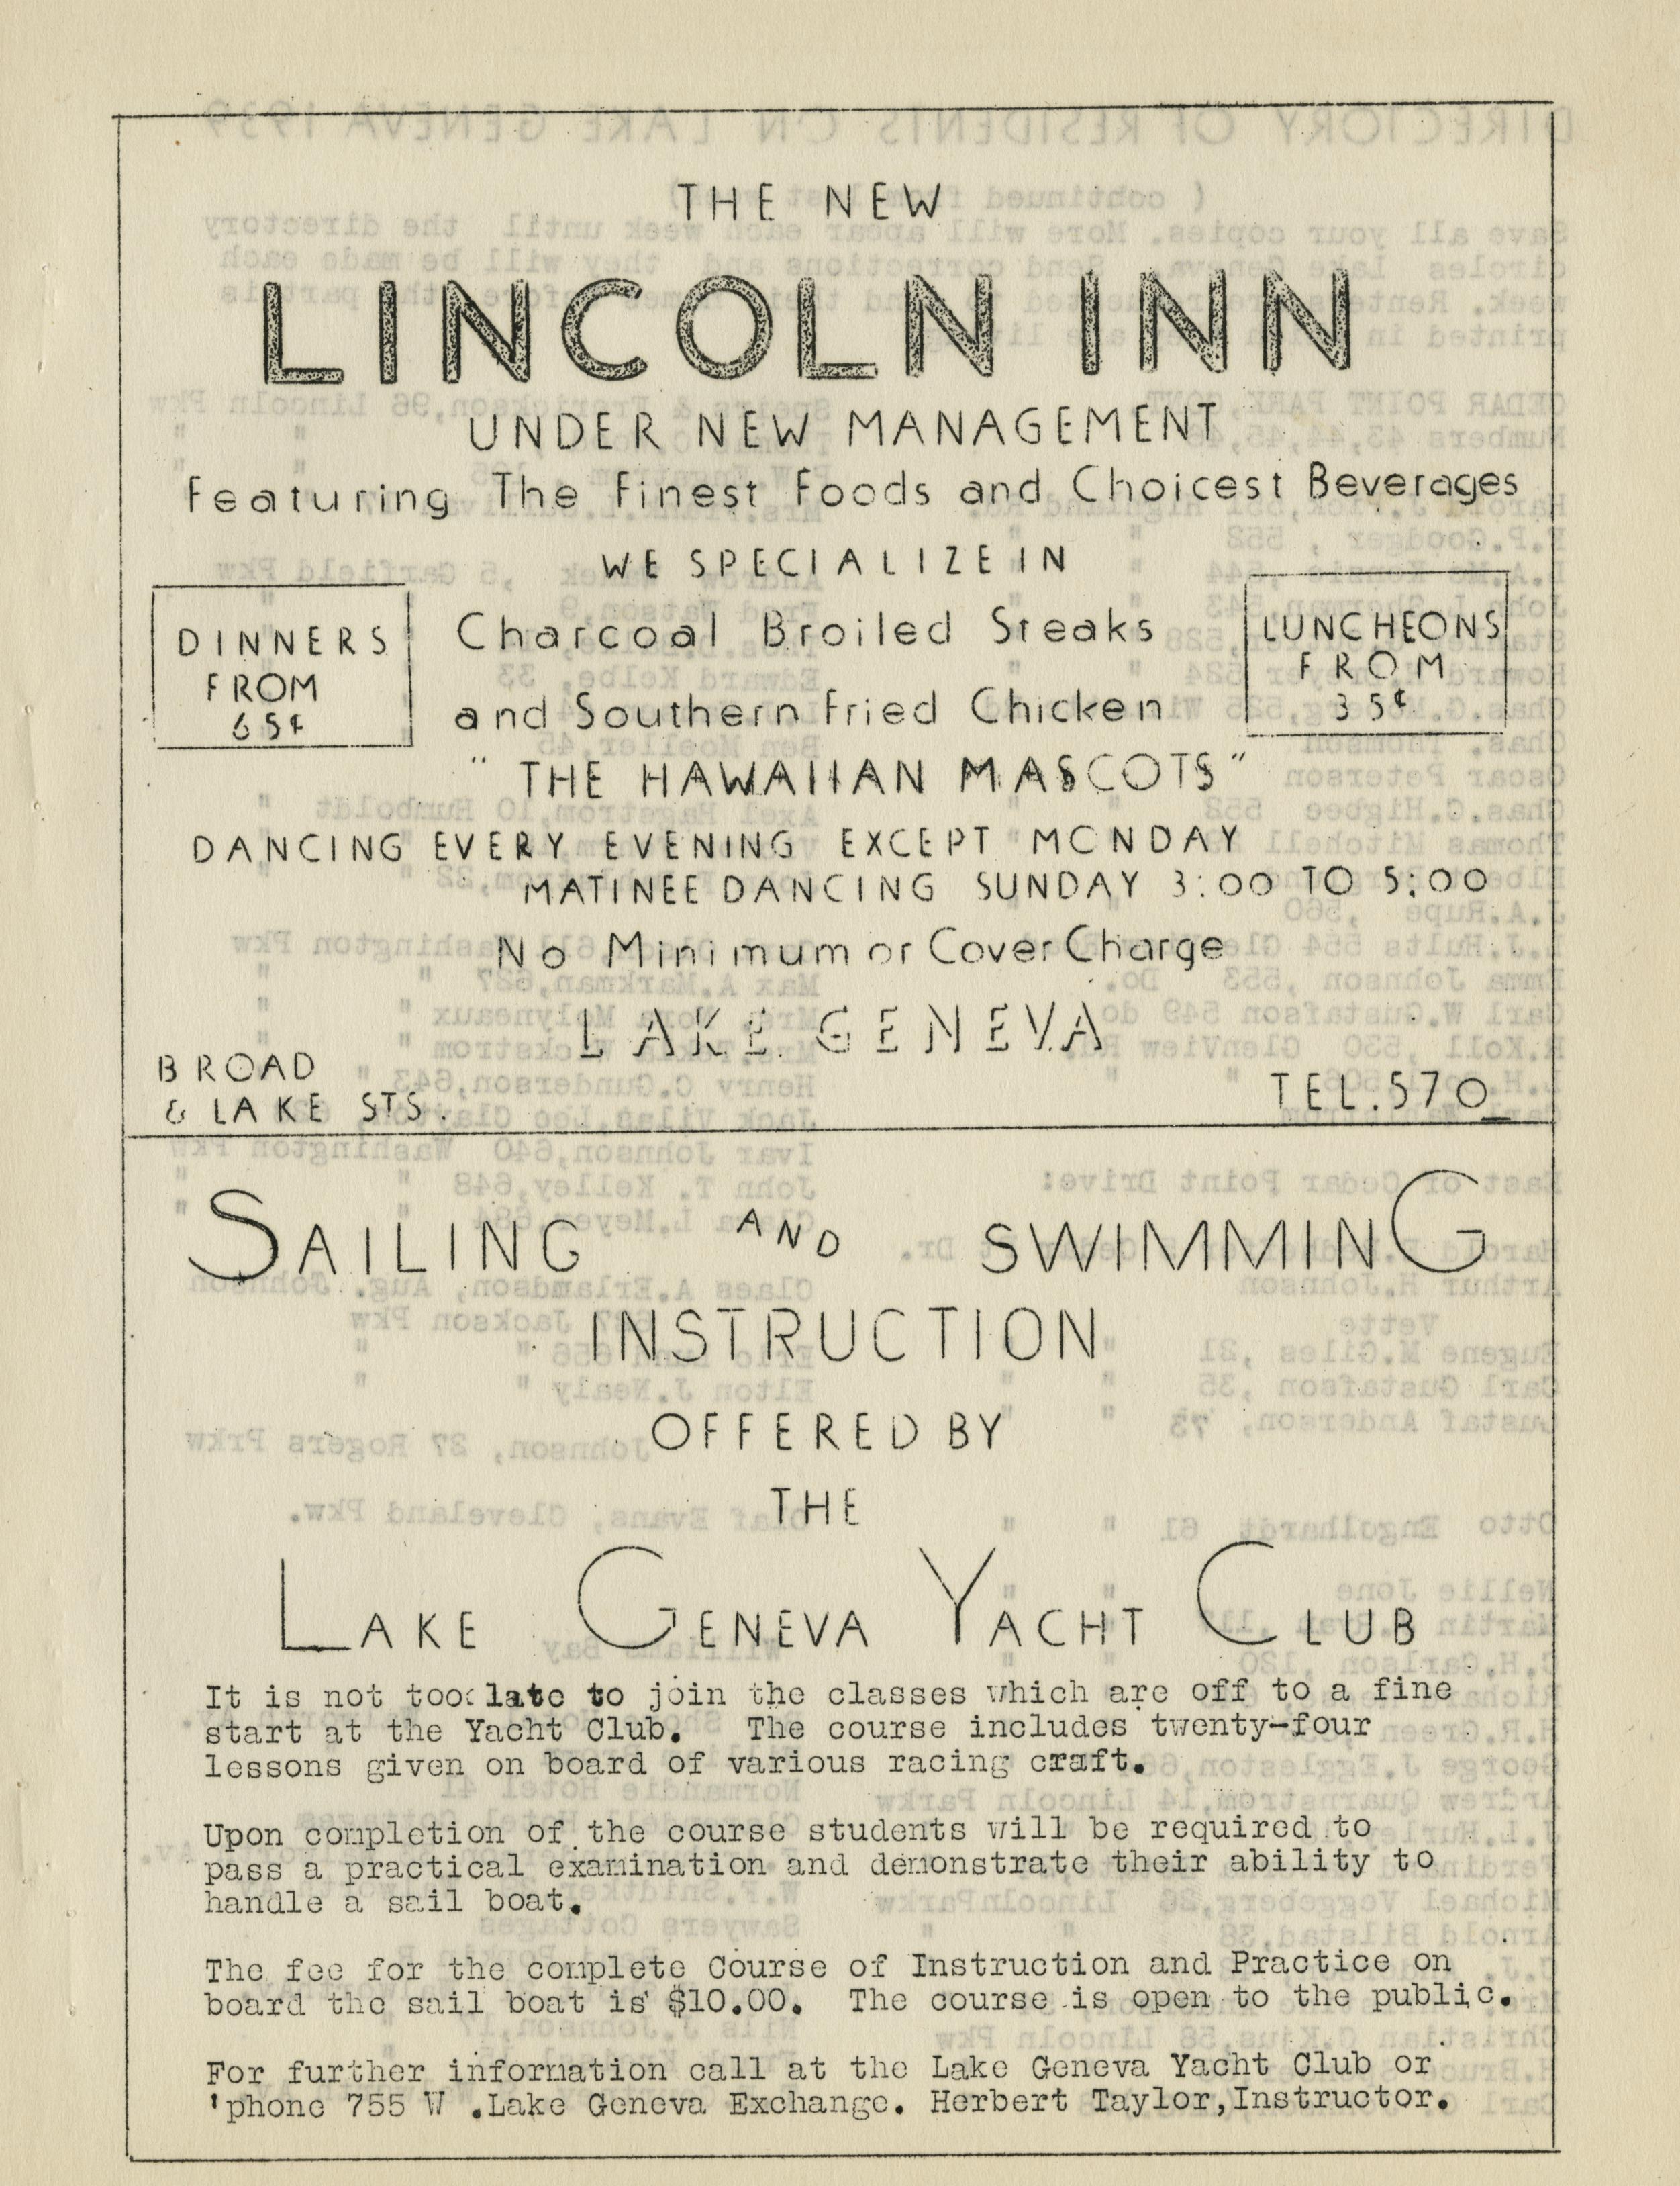 THE NEW
LINCOLN INN
UNDER NEW MANAGEMENT
Featuring The Finest Foods and Choicest Beverages
WE SPECIALIZE IN
DINNERS
FROM
65¢
Charcoal Broiled Steaks
and Southern Fried Chicken
LUNCHEONS
FROM
35¢
" THE HAWAIIAN MASCOTS "
DANCING EVERY EVENING EXCEPT MONDAY
MATINEE DANCING SUNDAY 3:00 TO 5:00
No Minimum or Cover Charge
LAKE GENEVA
BROAD
& LAKE STS.
TEL.570
SAILING AND SWIMMING
INSTRUCTION
OFFERED BY
THE
LAKE GENEVA YACHT CLUB
It is not too late to join the classes which are off to a fine
start at the Yacht Club. The course includes twenty-four
lessons given on board of various racing craft.
Upon completion of the course students will be required to
pass a practical examination and demonstrate their ability to
handle a sail boat.
The fee for the complete Course of Instruction and Practice on
board the sail boat is $10.00. The course is open to the public.
For further information call at the Lake Geneva Yacht Club or
'phone 755 W .Lake Geneva Exchange. Herbert Taylor,Instructor.